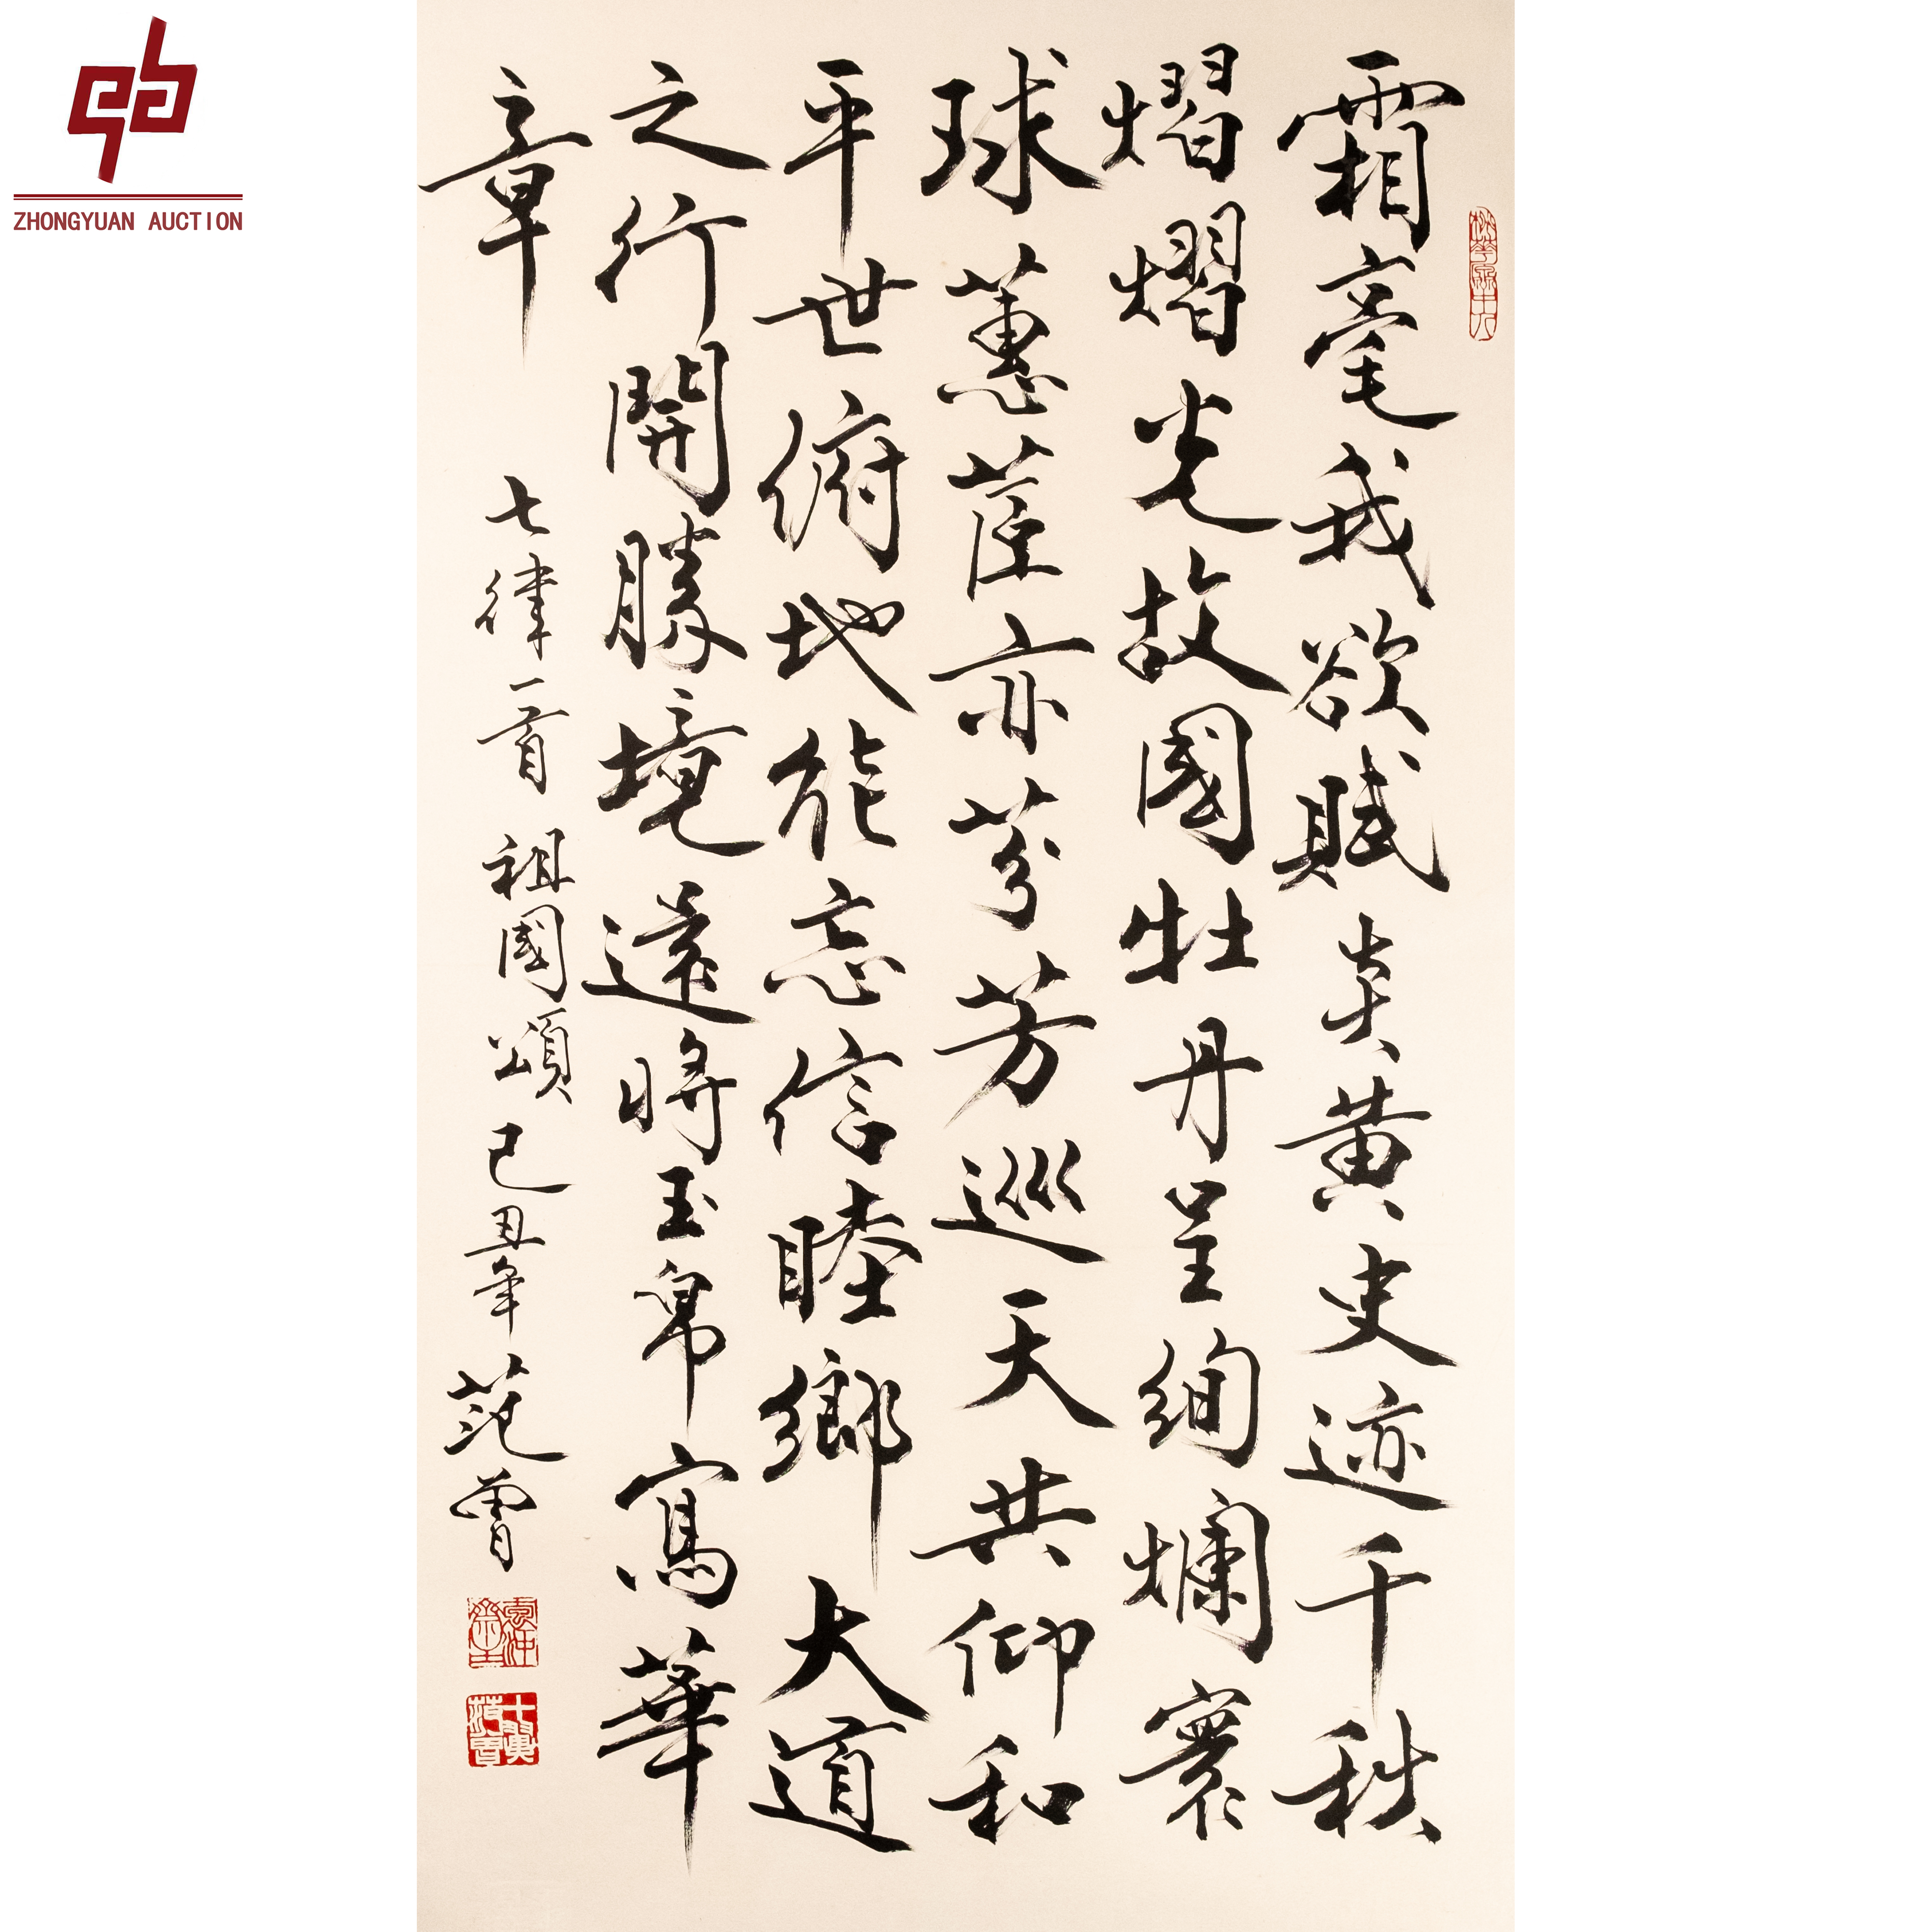 霜毫我欲賦炎黄史迹千秩
熠熠光故國牡丹呈絢爛寰
球蕙茝亦芬芳巡天共仰和
平世俯地能忘信睦鄉大道
之行開勝境遠將玉帛寫華
章
七律一首 祖國頌 己丑年 范曾
十翼范曾
ZHONGYUAN AUCTION